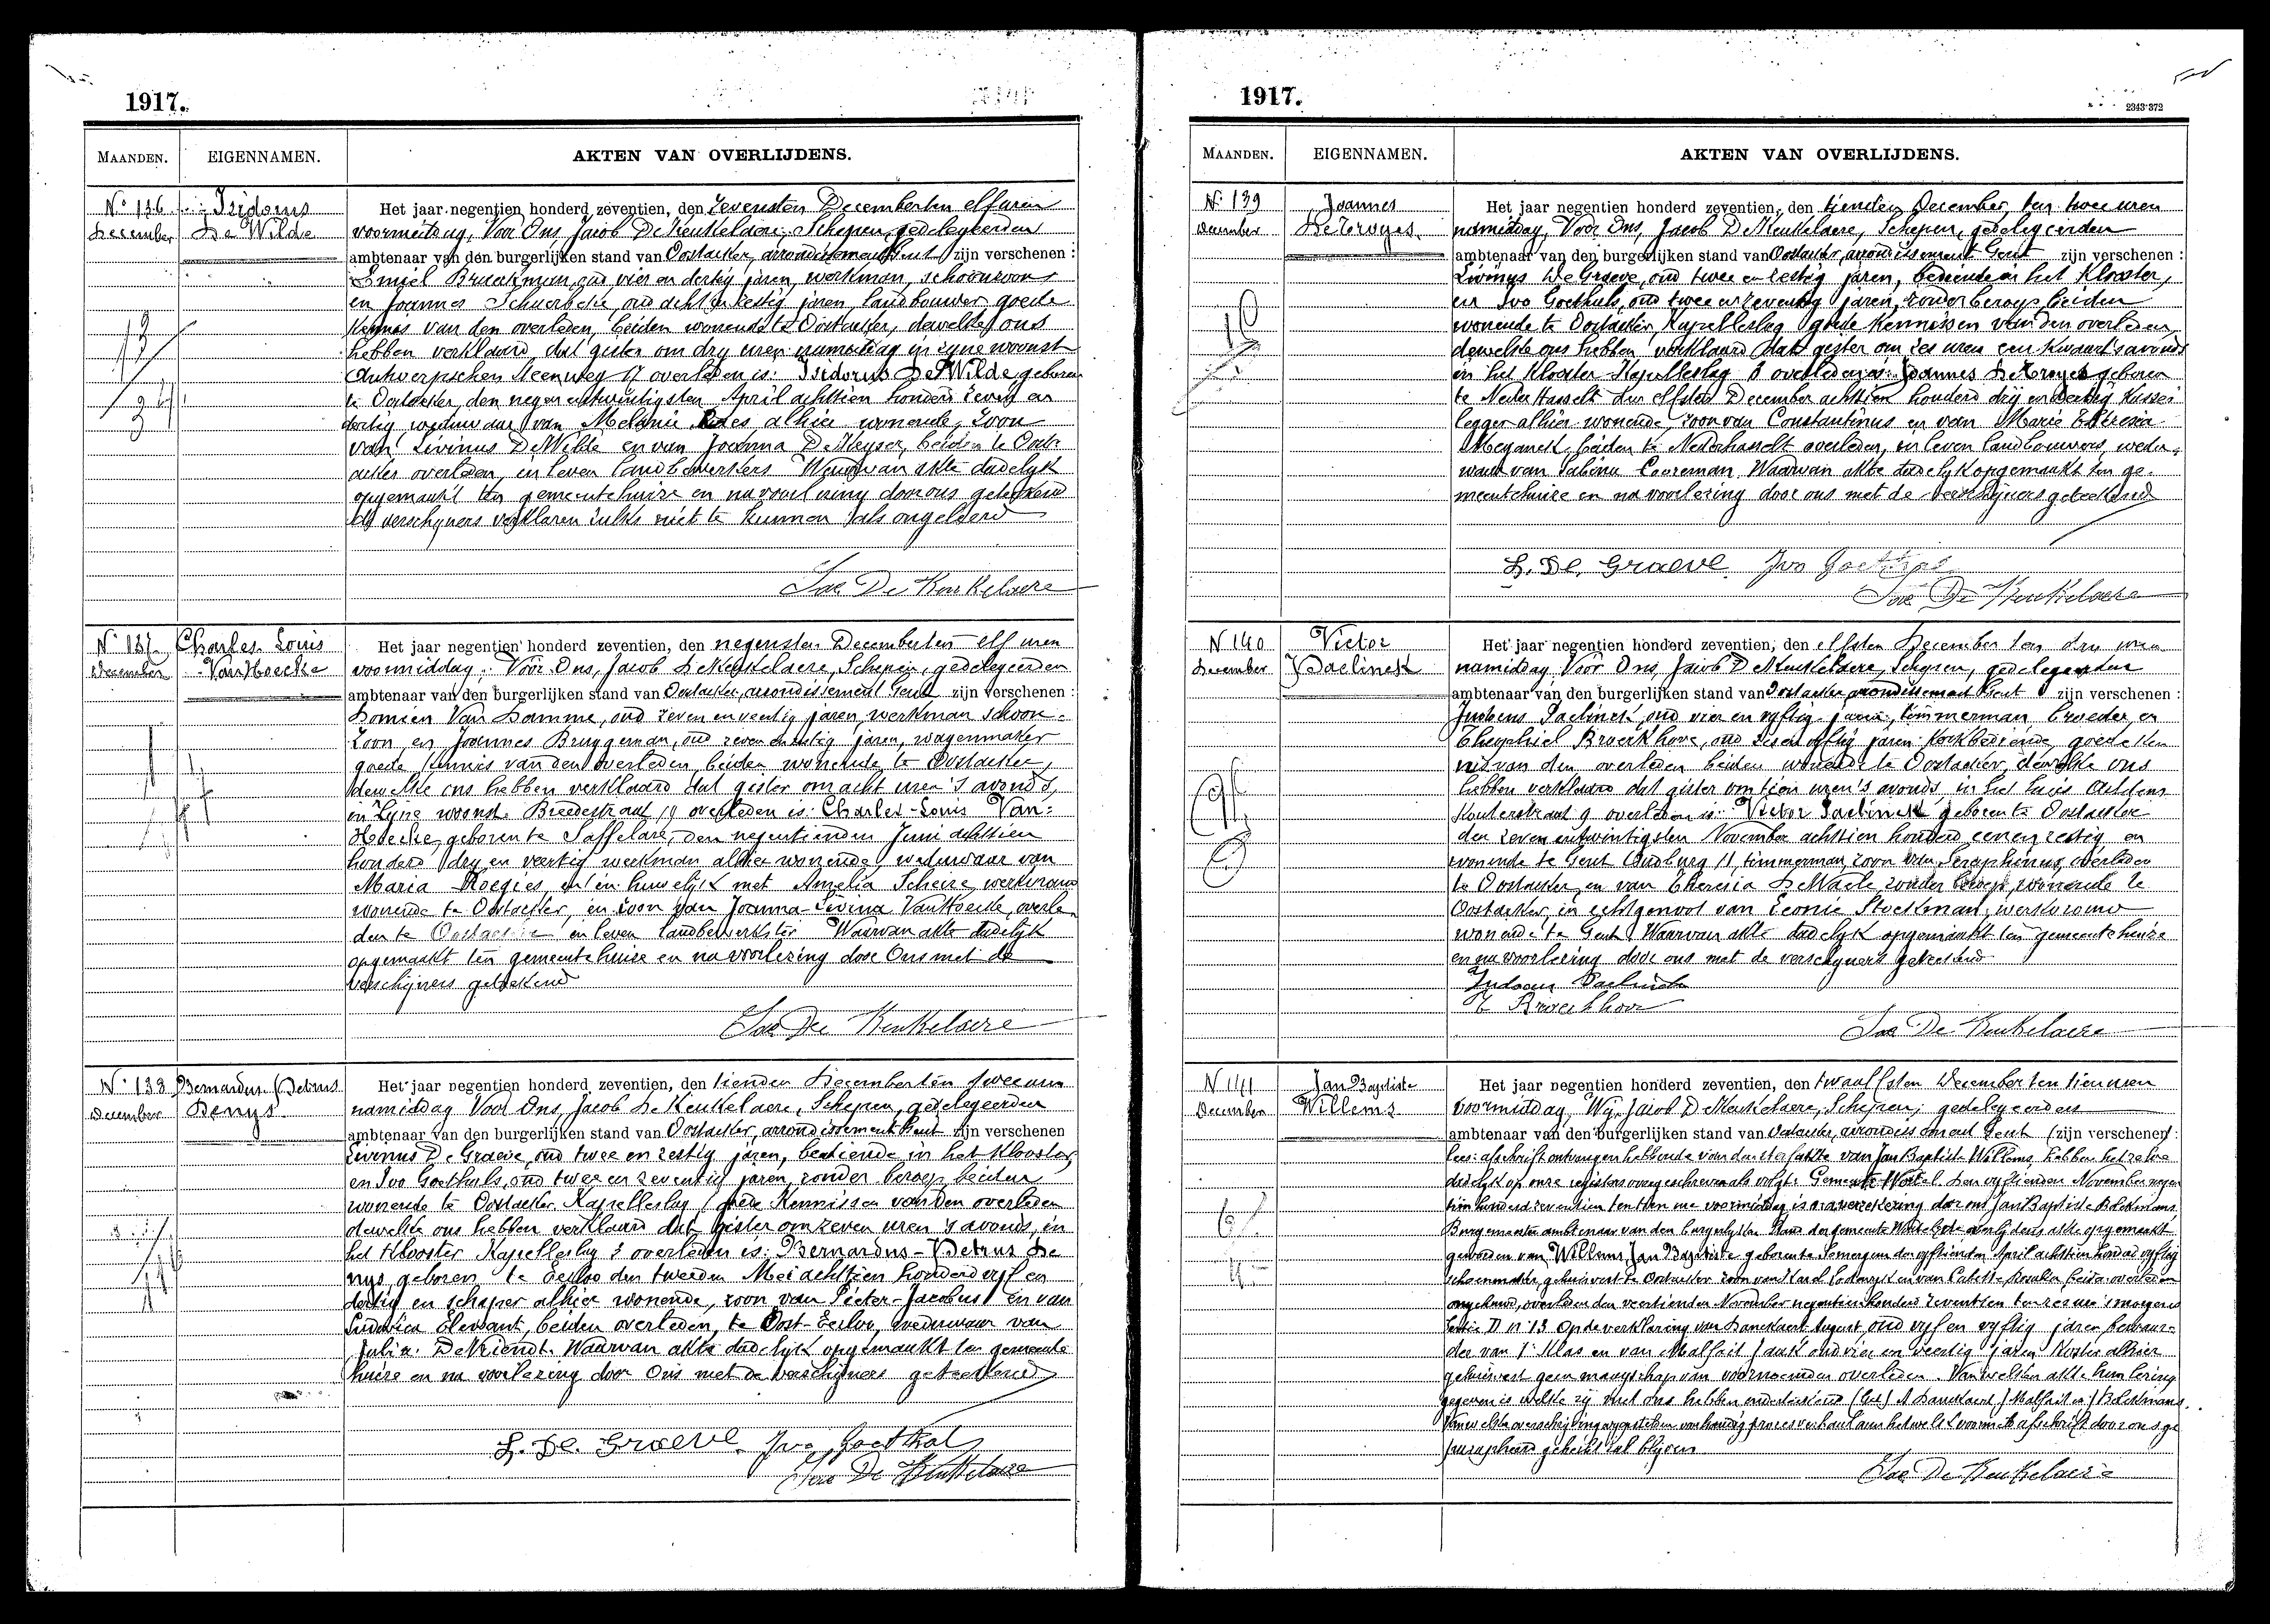 1917.
MAANDEN. EIGENNAMEN. AKTEN VAN OVERLIJDENS.
N° 136 Isidorus
December De Wilde
Het jaar negentien honderd zeventien, den zevensten December ten elf uren
voormiddag, Voor Ons, Jacob De Keukelaere, Schepen, gedelegeerden
ambtenaar van den burgerlijken stand van Oostacker, arrondissement Gent zijn verschenen :
Emiel Braeckman, oud vier en dertig jaren, werkman, schoonzoon
en Joannes Schuerbeke, oud acht en zestig jaren, landbouwer goede
kennis van den overleden, beiden wonende te Oostacker, dewelke ons
hebben verklaard dat gister om dry uren namiddag in zyne woonst
Antwerpschen steenweg 17 overleden is: Isidorus De Wilde geboren
te Oostacker den negen en twintigsten April achttien honderd zeven en
dertig weduwaar van Melanie alhier wonende, zoon
van Livinus De Wilde en van Joanna De Keyser, beiden te Oost-
acker overleden, in leven landbewerkers Waarvan akte dadelyk
opgemaakt ten gemeentehuize en na voorlezing door ons geteekend
de verschyners verklaren zulks niet te kunnen als ongeleerd
Jac De Keukelaere
N° 137 Charles Louis
December Van Hoecke
Het jaar negentien honderd zeventien, den negensten December ten elf uren
voormiddag, Voor Ons, Jacob De Keukelaere, Schepen, gedelegeerden
ambtenaar van den burgerlijken stand van Oostacker, arrondissement Gent zijn verschenen :
Domien Van Damme, oud zeven en veertig jaren, werkman schoon-
zoon en Joannes Bruggeman, oud zeven en jaren, wagenmaker
goede kennis van den overleden, beiden wonende te Oostacker,
dewelke ons hebben verklaard dat gister om acht uren 's avonds,
in zijne woonst Breedestraat 19 overleden is: Charles-Louis Van-
Hoecke, geboren te Saffelare, den negentienden Juni achttien
honderd dry en veertig werkman alhier wonende, weduwaar van
Maria Roegies, en in huwelijk met Amelia Scheire, werkvrouw
wonende te Oostacker, en zoon van Joanna-Livina Van Hoecke, overle-
den te Oostacker in leven landbewerkster Waarvan akte dadelyk
opgemaakt ten gemeentehuize en na voorlezing door Ons met de
verschijners geteekend
Jac De Keukelaere
N° 138 Bernardus Petrus
December Denys
Het jaar negentien honderd zeventien, den tienden December ten twee uren
namiddag Voor Ons, Jacob De Keukelaere, Schepen, gedelegeerden
ambtenaar van den burgerlijken stand van Oostacker, arrondissement Gent zijn verschenen
Livinus De Graeve, oud twee en zestig jaren, bediende in het Klooster,
en Ivo Goethals, oud twee en zeventig jaren, zonder beroep, beiden
wonende te Oostacker Kapelleslag goede Kennissen van den overleden
dewelke ons hebben verklaard dat gister om zeven uren 's avonds, in
het Klooster Kapelleslag 3 overleden is: Bernardus-Petrus De
nys, geboren te Eecloo den tweeden Mei achttien honderd vijf en
dertig en schaper alhier wonende, zoon van Pieter-Jacobus en van
Ludovica Elewaut, beiden overleden, te Oost-Eecloo, weduwaar van
Julia De Vriendt. Waarvan akte dadelijk opgemaakt ten gemeente
huize en na voorlezing door Ons met de verschijners geteekend
L. De. Graeve. Ivo Goethals
Jac De Keukelaere
1917.
2343-372
MAANDEN. EIGENNAMEN. AKTEN VAN OVERLIJDENS.
N° 139 Joannes
December De Troyes
Het jaar negentien honderd zeventien, den tienden December, ten twee uren
namiddag, Voor Ons, Jacob De Keukelaere, Schepen, gedelegeerden
ambtenaar van den burgerlijken stand van Oostacker, arrondissement Gent zijn verschenen :
Livinus De Graeve, oud twee en zestig jaren, bediende in het Klooster,
en Ivo Goethals, oud twee en zeventig jaren, zonder beroep beiden
wonende te Oostacker, Kapelleslag goede Kennissen van den overleden,
dewelke ons hebben verklaard dat gister om zes uren een kwaart 's avonds
in het Klooster Kapelleslag 3 overleden is: Joannes De Troyes geboren
te Nederhasselt den elfsten December achttien honderd dry en dertig kassei-
legger alhier wonende, zoon van Constantinus en van Marie Theresia
Meganck, beiden te Nederhasselt overleden, in leven landbouwers, wedu-
waar van Sabina Cooreman. Waarvan akte dadelyk opgemaakt ten ge-
meentehuize en na voorlezing door ons met de verschijners geteekend
L. De. Graeve. Ivo Goethals
Jac De Keukelaere
N° 140 Victor
December Paelinck
Het jaar negentien honderd zeventien, den elfsten December ten dry uren
namiddag, Voor Ons, Jacob De Keukelaere, Schepen, gedelegeerden
ambtenaar van den burgerlijken stand van Oostacker arrondissement Gent zijn verschenen :
Paelinck, oud vier en vyftig jaren, timmerman broeder, en
Theophiel Broeckhove, oud zes en vyftig jaren kerkbediende, goede ken
nis van den overleden beiden wonende te Oostacker, dewelke ons
hebben verklaard dat gister om tien uren 's avonds, in het huis
Houterstraat 9 overleden is: Victor Paelinck geboren te Oostacker
den zeven en twintigsten November achttien honderd een en zestig, en
wonende te Gent Oudburg 11, timmerman, zoon van Seraphinus, overleden
te Oostacker, en van Theresia De Waele, zonder beroep, wonende te
Oostacker, en echtgenoot van Leonie Stockman, werkvrouw
wonende te Gent. Waarvan akte dadelyk opgemaakt ten gemeentehuize
en na voorlezing door ons met de verschijners geteekend
Paelinck
T Broeckhove
Jac De Keukelaere
N° 141 Jan Baptiste
December Willems
Het jaar negentien honderd zeventien, den twaalfsten December ten tien uren
voormiddag, Wij, Jacob De Keukelaere, Schepen, gedelegeerden
ambtenaar van den burgerlijken stand van Oostacker, arrondissement Gent (zijn verschenen) :
lees: afschrift ontvangen hebbende van de sterfakte van Jan Baptiste Willems, hebben hetzelve
dadelyk op onze registers overgeschreven als volgt: Gemeente Wortel. Den vyftienden November negen
tien honderd zeventien ten tien ure voormiddag is door ons Jan Baptiste
Burgemeester ambtenaar van den burgerlyken Stand der gemeente Wortel de overlijdens akte opgemaakt
geworden van Willems Jan Baptiste geboren te Somergem den vyftienden April achttien honderd vyftig
schoenmaker, gehuisvest te Oostacker zoon van Karel Lodewyk en van beiden overleden
ongehuwd, overleden den veertienden November negentien honderd zeventien ten zes ure 's morgens
Sectie D n° 13 Op de verklaring van Danckaert August, oud vyf en vyftig jaren bewaar-
der van 1° Klas en van Malfait oud vier en veertig jaren alhier
gehuisvest geen maagschap van voornoemden overleden. Van welken akte hun lezing
gegeven is welke zij met ons hebben onderteekend (Get) A Danckaert
Jac De Keukelaere